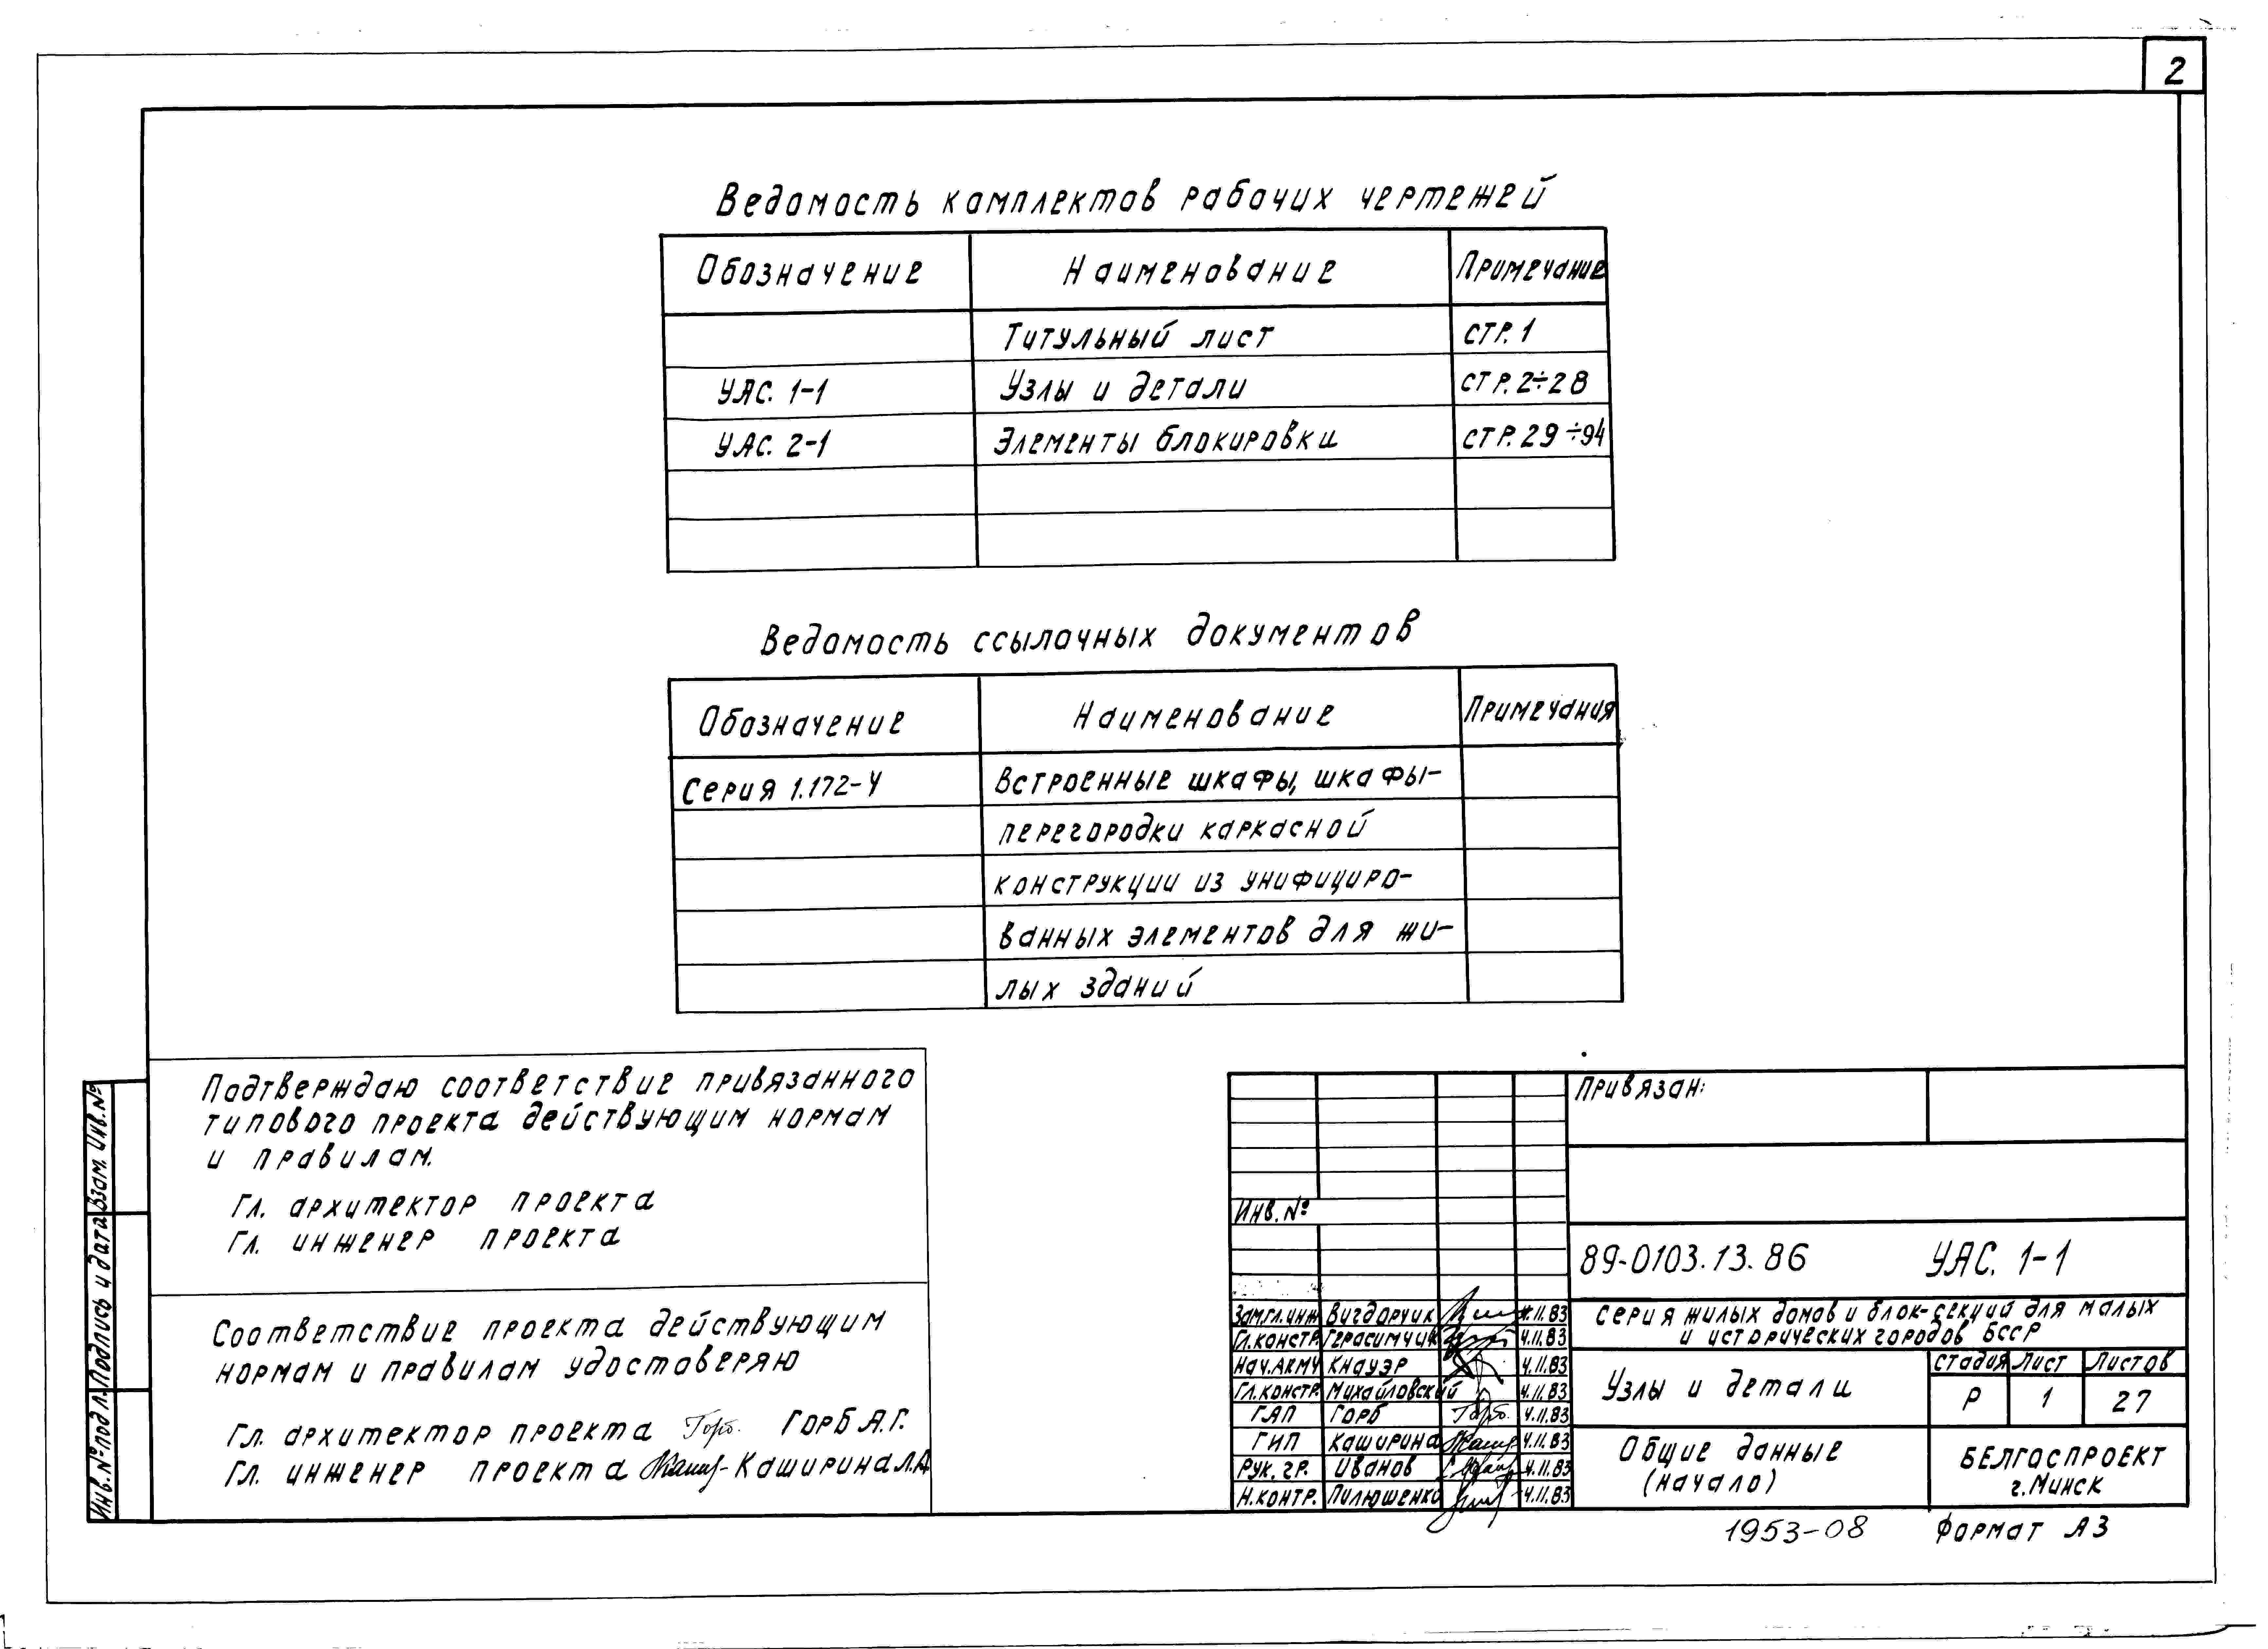 2
Ведомость комплектов рабочих чертежей
Обозначение Наименование Примечание
Титульный лист стр. 1
УАС. 1-1 Узлы и детали стр. 2÷28
УАС. 2-1 Элементы блокировки стр. 29÷94
Ведомость ссылочных документов
Обозначение Наименование Примечания
Серия 1.172-4 Встроенные шкафы, шкафы-
перегородки каркасной
конструкции из унифициро-
ванных элементов для жи-
лых зданий
Подтверждаю соответствие привязанного
типового проекта действующим нормам
и правилам.
Гл. архитектор проекта
Гл. инженер проекта
Соответствие проекта действующим
нормам и правилам удостоверяю
Гл. архитектор проекта Горб А.Г.
Гл. инженер проекта Каширина Л.А
Взам. инв. №
Подпись и дата
Инв. № подл.
Привязан:
Инв. №
89-0103.13.86 УАС. 1-1
Зам.гл.инж Вигдорчик 4.11.83
Гл.констр. Герасимчик 4.11.83
Нач.АКМЧ Кнауэр 4.11.83
Гл.констр. Михайловский 4.11.83
ГАП Горб 4.11.83
ГИП Каширина 4.11.83
Рук. гр. Иванов 4.11.83
Н.контр. Пилюшенко 4.11.83
Серия жилых домов и блок-секций для малых
и исторических городов БССР
Узлы и детали
Стадия Лист Листов
Р 1 27
Общие данные
(начало)
БЕЛГОСПРОЕКТ
г. Минск
1953-08 Формат А3